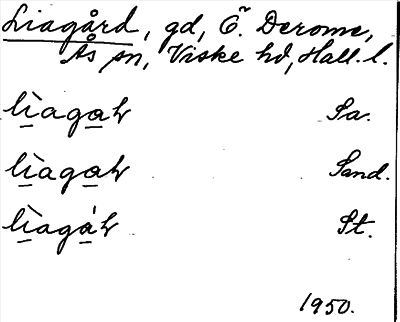 Liagård, gd, Ö. Derome,
Ås sn, Viske hd, Hall. l.
lìagaɦ Sa.
lìagaɦ Sand.
lìagáɦ St.
1950.